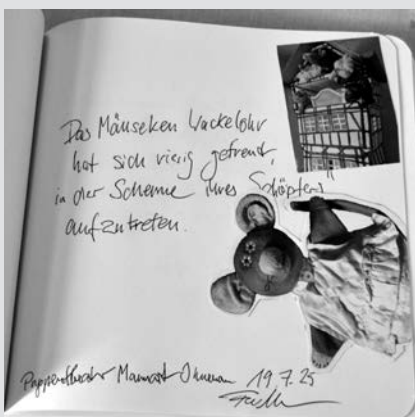 Das Mäuseken Wackelohr
hat sich riesig gefreut,
in der Scheune ihres Schöpfers
aufzutreten.
Puppentheater 19.7.25